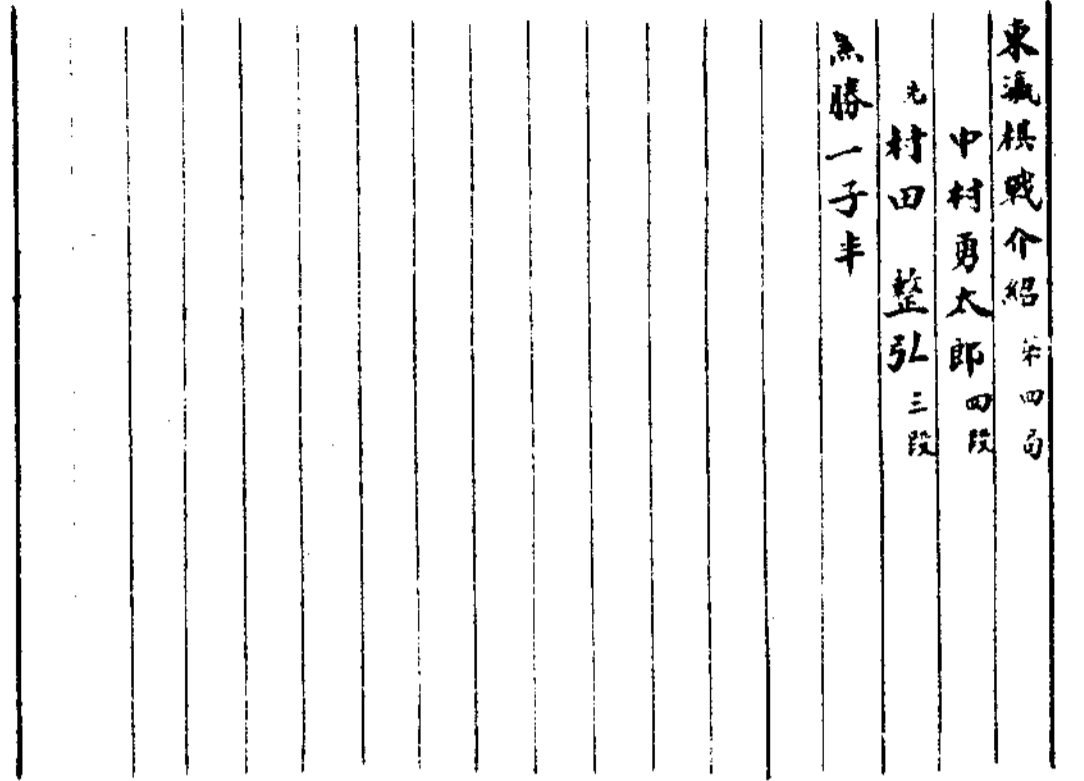 東瀛棋戰介紹 第四局
中村勇太郎 四段
先 村田 整弘 三段
黑勝一子半